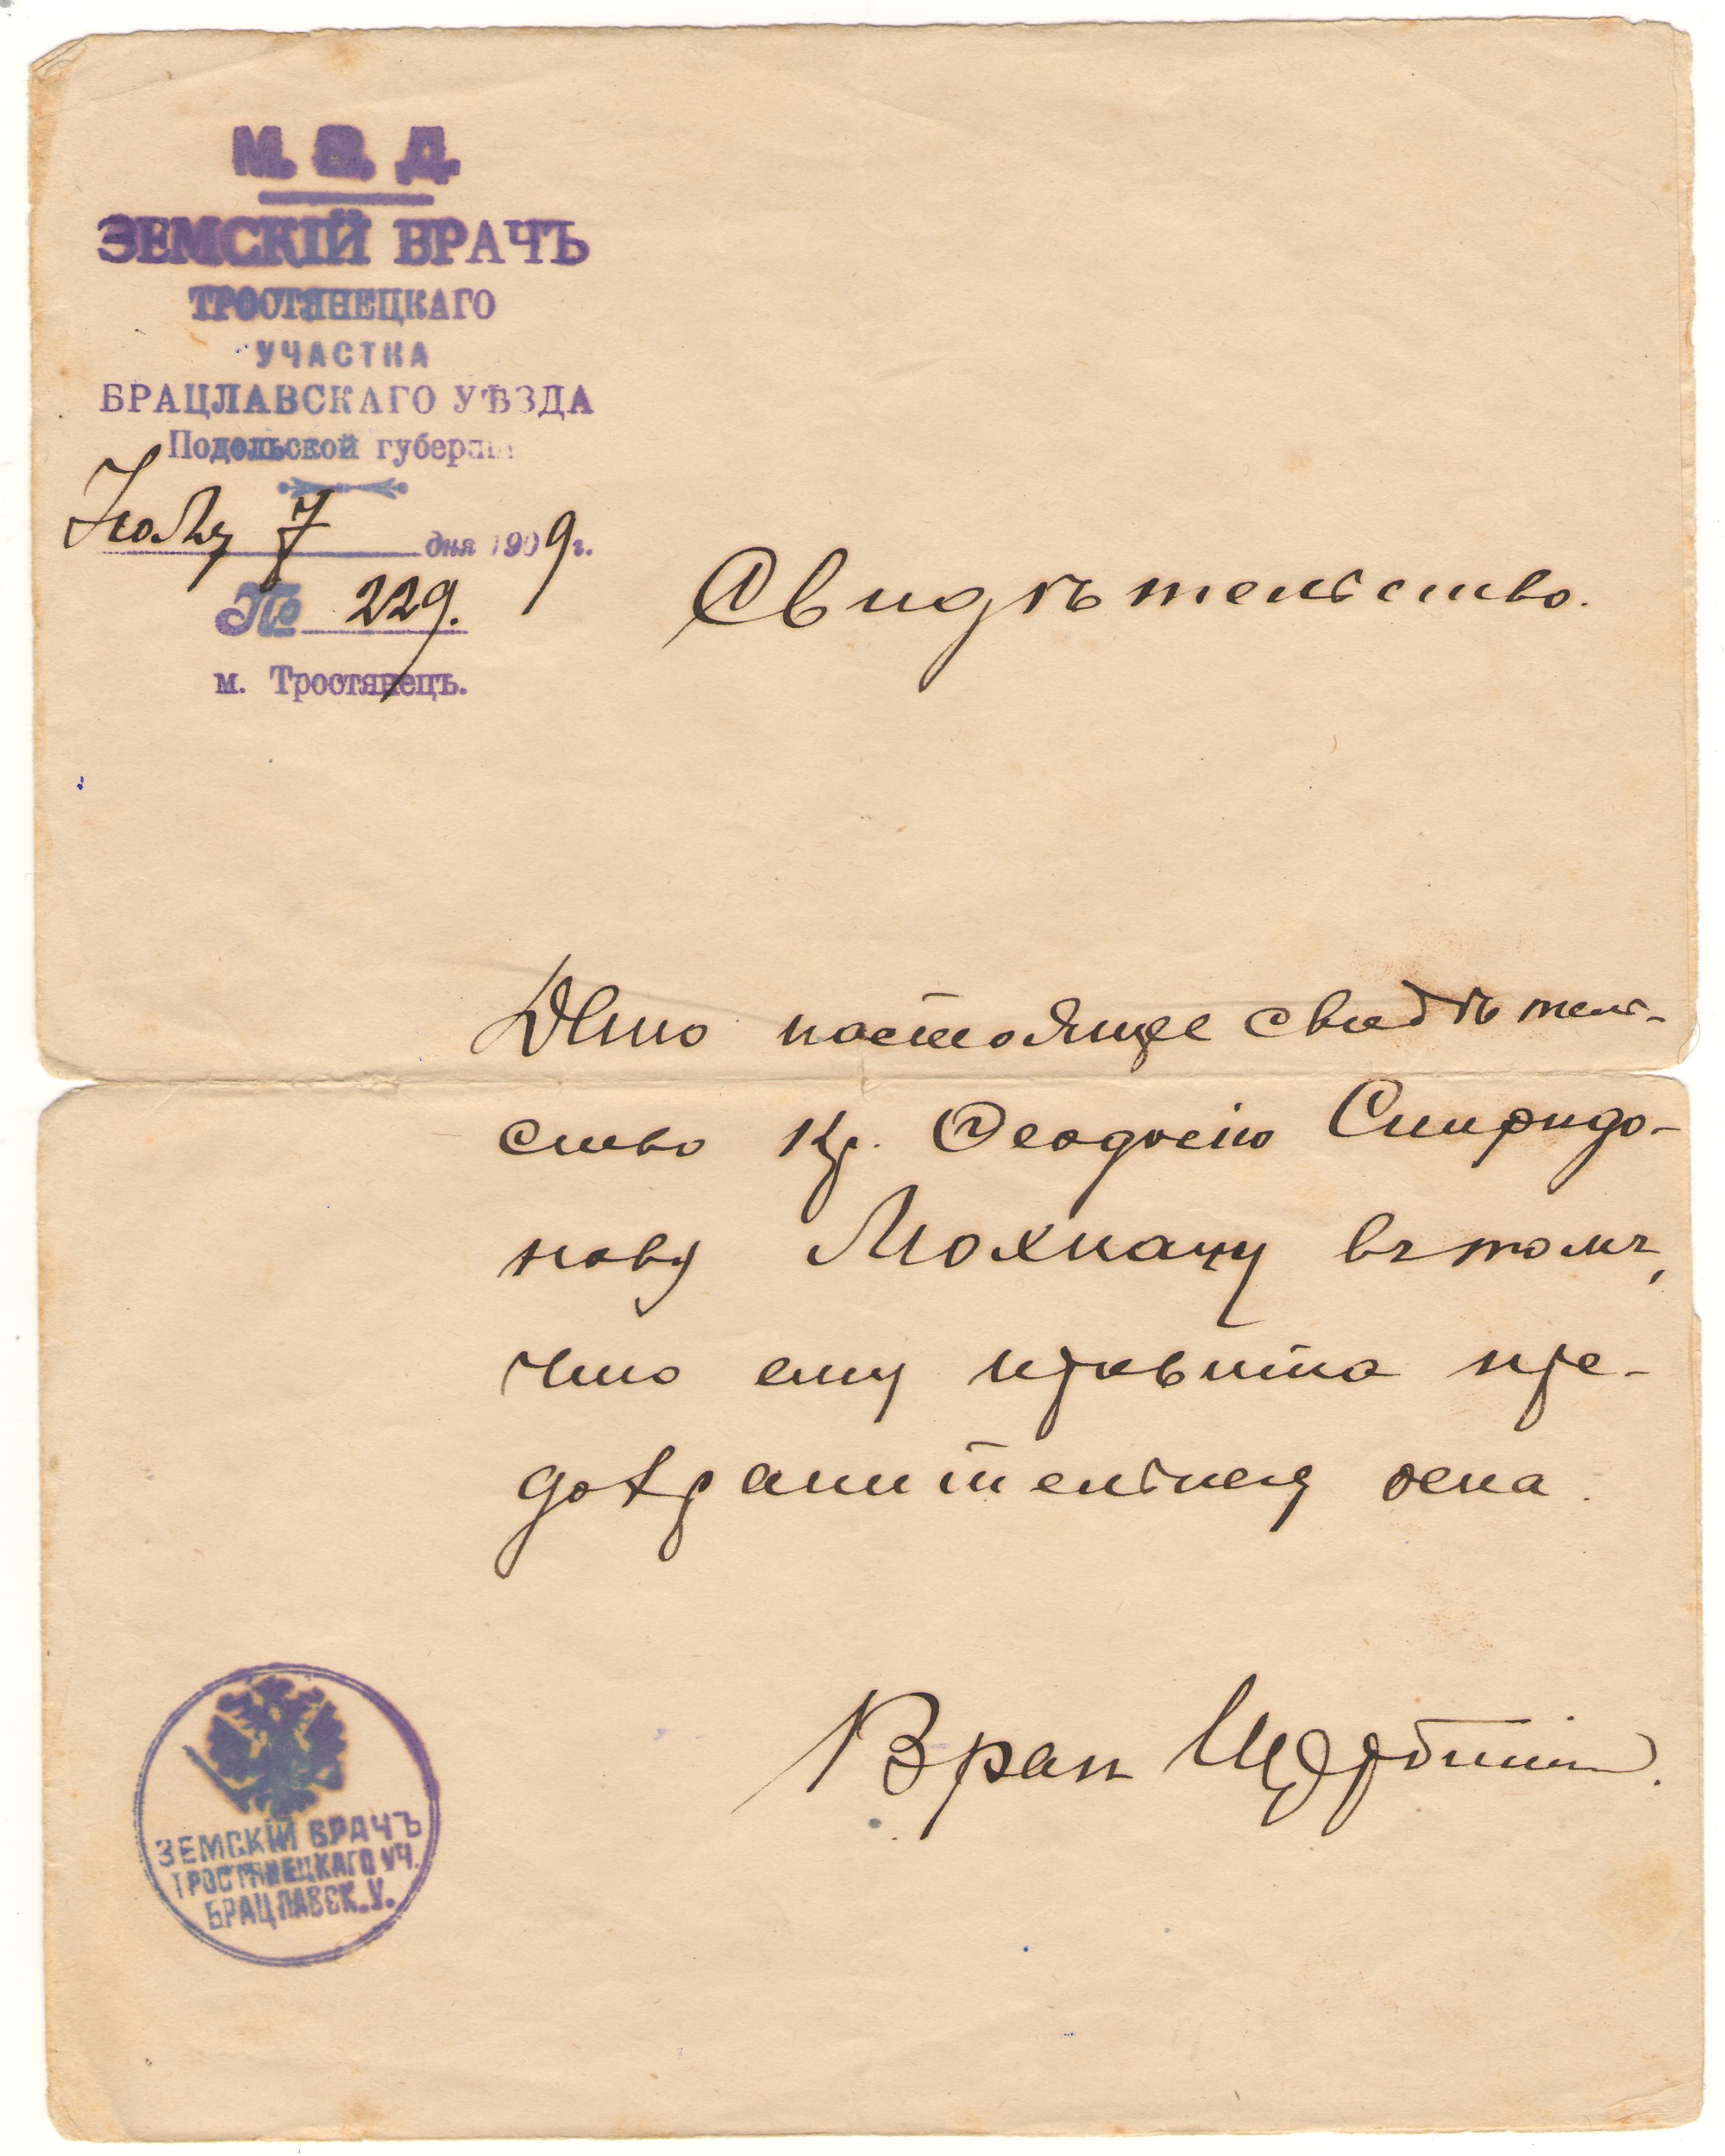 М. В. Д.
ЗЕМСКІЙ ВРАЧЪ
ТРОСТЯНЕЦКАГО
УЧАСТКА
БРАЦЛАВСКАГО УѢЗДА
Подольской губерніи
Іюля 7 дня 1909 г.
№ 229.
м. Тростянецъ.
Свидѣтельство.
Дано настоящее свидѣтель-
ство Кр. Феодосію Спиридо-
нову Мохначу въ томъ,
что ему привита пре-
дохранительная оспа.
Врач
ЗЕМСКІЙ ВРАЧЪ
ТРОСТЯНЕЦКАГО УЧ.
БРАЦЛАВСК. У.